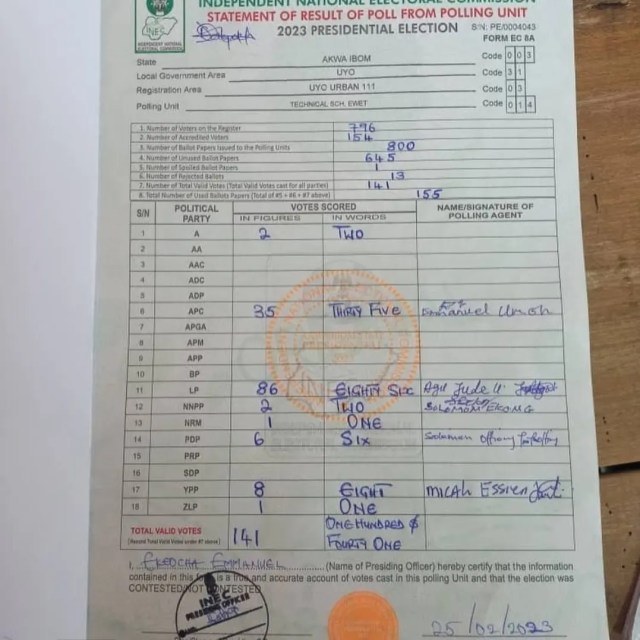 INDEPENDENT NATIONAL ELECTORAL COMMISSION
STATEMENT OF RESULT OF POLL FROM POLLING UNIT
2023 PRESIDENTIAL ELECTION
S/N: PE/0004043
FORM EC 8A
State AKWA IBOM Code 0 0 3
Local Government Area UYO Code 3 1
Registration Area UYO URBAN 111 Code 0 3
Polling Unit TECHNICAL SCH, EWET Code 0 1 4
1. Number of Voters on the Register 796
2. Number of Accredited Voters 154
3. Number of Ballot Papers Issued to the Polling Units 800
4. Number of Unused Ballot Papers 645
5. Number of Spoiled Ballot Papers 1
6. Number of Rejected Ballots 13
7. Number of Total Valid Votes (Total Valid Votes cast for all parties) 141
8. Total Number of Used Ballots Papers (Total of #5 + #6 + #7 above) 155
S/N POLITICAL PARTY VOTES SCORED IN FIGURES IN WORDS NAME/SIGNATURE OF POLLING AGENT
1 A 2 TWO
2 AA
3 AAC
4 ADC
5 ADP
6 APC 35 THIRTY FIVE Emmanuel Umoh
7 APGA
8 APM
9 APP
10 BP
11 LP 86 EIGHTY SIX Agu Jude U.
12 NNPP 2 TWO SOLOMON EKONG
13 NRM 1 ONE
14 PDP 6 SIX Solomon Offiong
15 PRP
16 SDP
17 YPP 8 EIGHT Micah Essien
18 ZLP 1 ONE
TOTAL VALID VOTES 141 ONE HUNDRED &
[Record Total Valid Votes under #7 above] FOURTY ONE
I, EMMANUEL (Name of Presiding Officer) hereby certify that the information
contained in this is a true and accurate account of votes cast in this polling Unit and that the election was
CONTESTED/NOT CONTESTED
INEC
PRESIDING OFFICER
25/02/2023